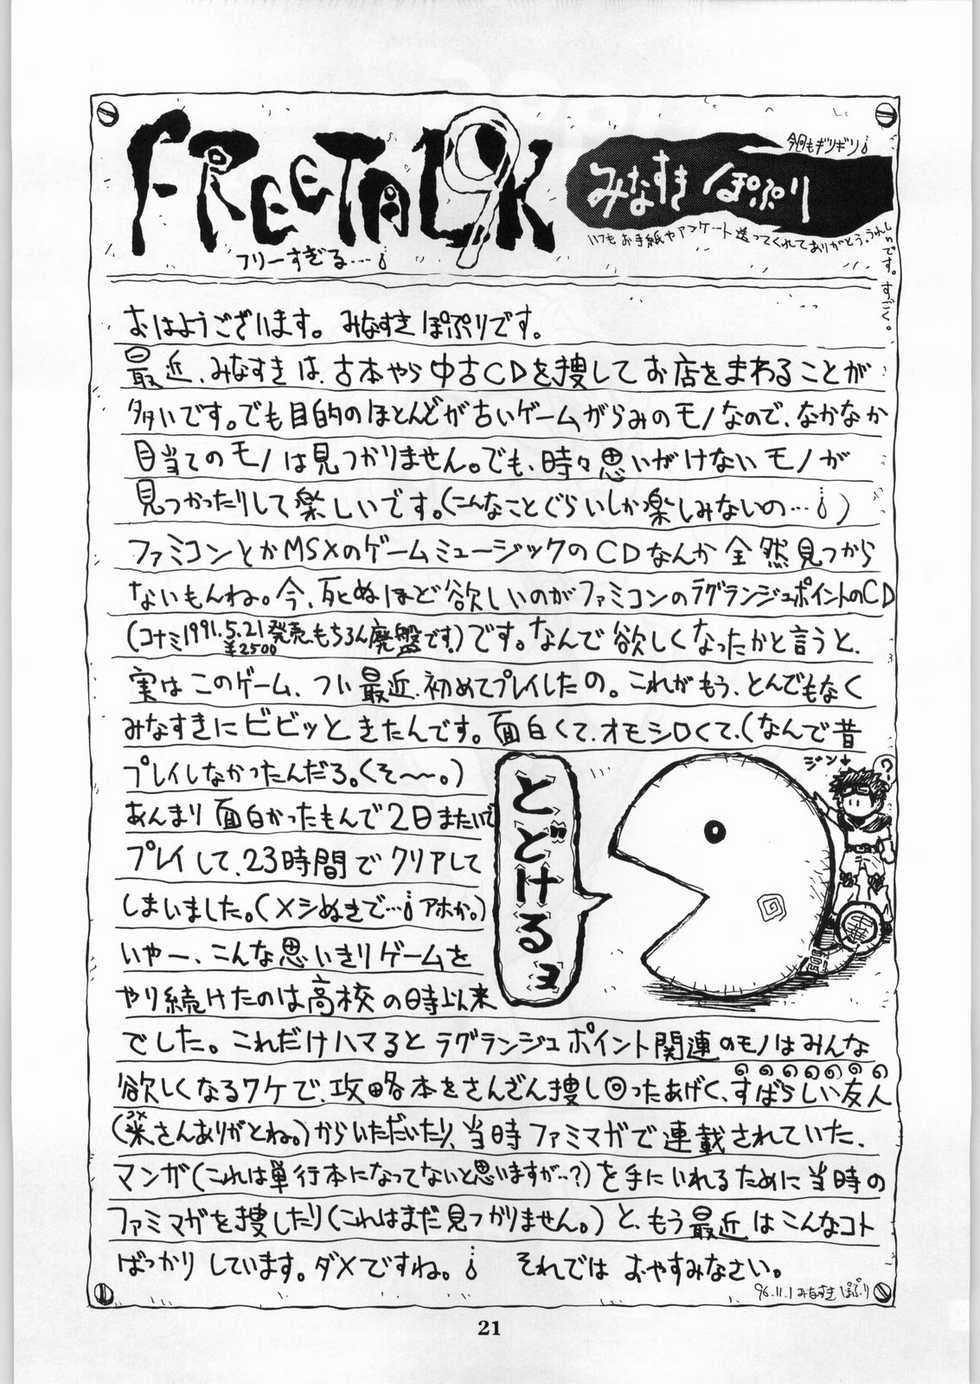 FREETALK 9
フリーすぎる…
今回もギリギリ
みなすき ぽぷり
いつもお手紙やアンケート送ってくれてありがとう。うれしいです。すごく。
おはようございます。みなすきぽぷりです。
最近、みなすきは、古本やら中古CDを捜してお店をまわることが
多いです。でも目的のほとんどが古いゲームがらみのモノなので、なかなか
目当てのモノは見つかりません。でも、時々思いがけないモノが
見つかったりして楽しいです。(こんなことぐらいしか楽しみないの…)
ファミコンとかMSXのゲームミュージックのCDなんか全然見つから
ないもんね。今、死ぬほど欲しいのがファミコンのラグランジュポイントのCD
(コナミ1991.5.21発売もちろん廃盤です)です。なんで欲しくなったかと言うと、
¥2500
実はこのゲーム、つい最近、初めてプレイしたの。これがもう、とんでもなく
みなすきにビビッときたんです。面白くて、オモシロくて、(なんで昔
プレイしなかったんだろ。くそ〜。)
あんまり面白かったもんで2日またいで
プレイして、23時間でクリアして
しまいました。(メシぬきで…アホか。)
いやー、こんな思いきりゲームを
やり続けたのは高校の時以来
とどけるヨ
ジン
?
でした。これだけハマるとラグランジュポイント関連のモノはみんな
欲しくなるワケで、攻略本をさんざん捜し回ったあげく、すばらしい友人
(米さんありがとね。)からいただいたり、当時ファミマガで連載されていた、
マンガ(これは単行本になってないと思いますが…?)を手にいれるために当時の
ファミマガを捜したり(これはまだ見つかりません。)と、もう最近はこんなコト
ばっかりしています。ダメですね。 それでは おやすみなさい。
96.11.1 みなすきぽぷり
21